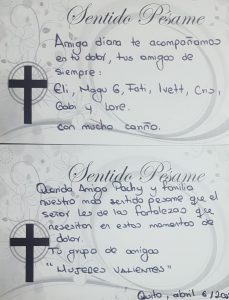 Sentido Pésame
Amiga diana te acompañamos
en tu dolor, tus amigas de
siempre:
Eli, Magu G, Fati, Ivett, Cris,
Gabi y Lore.
con mucho cariño.
Sentido Pésame
Querida Amiga Pachy y familia
nuestro mas sentido pesame que el
señor les de las fortalezas que
nesesitan en estos momentos de
dolor.
Tu grupo de amigas
"MUJERES VALIENTES"
Quito, abril 6/20